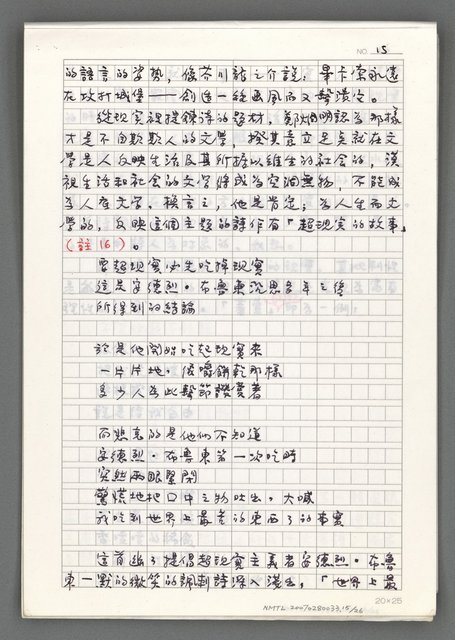 NO. 15
的語言的姿勢，像芥川龍之介說：畢卡索永遠
在攻打城堡——創造一種畫風而又擊潰它。
從現實裡提鍊詩的題材，鄭烱明認為那樣
才是不自欺欺人的文學，揆其意立足點就在文
學是人反映生活及其所據以維生的社會的，漠
視生活和社會的文學條成為空洞無物，不能成
為人生文學。換言之，他是肯定：為人生而文
學的，反映這個主題的詩作有「超現實的故事」
（註16）。
要超現實必先吃掉現實
這是安德烈·布魯東沉思多年之後
所得到的結論
於是他開始吃起現實來
一片片地，像嚼餅乾那樣
多少人為此擊節讚賞著
而悲哀的是他們不知道
安德烈·布魯東第一次吃時
突然兩眼緊閉
驚慌地把口中之物吐出，大喊
我吃到世界上最差的東西了的事實
這首追了提倡超現實主義者安德烈·布魯
東一點的微笑的諷刺詩深入淺出，「世界上最
20×25
NMTL 20070280033, 15/26